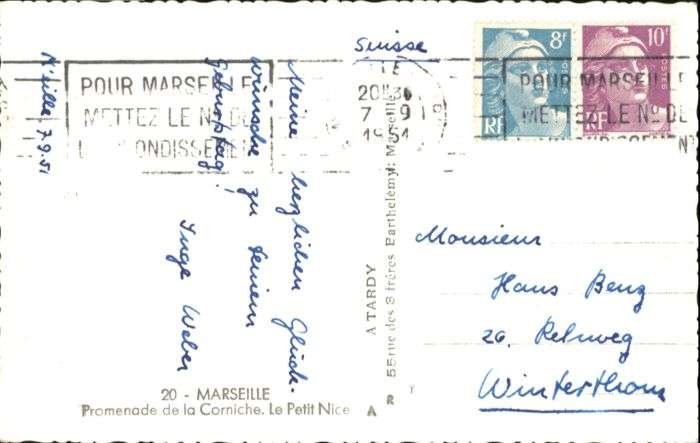 M'eille 7.9.51
Meine herzlichen Glück-
wünsche zu Deinem
Geburtstag!
Inge Weber
20 - MARSEILLE
Promenade de la Corniche. Le Petit Nice
A TARDY
55 rue des 3 frères Barthélemy: Marseille
POUR MARSEILLE
METTEZ LE No DE
L'ARRONDISSEMENT
20H30
7 - 9
1951
Suisse
8f
RF
10f
RF
POUR MARSEILLE
METTEZ LE No DE
Monsieur
Hans Benz
26,
Winterthour